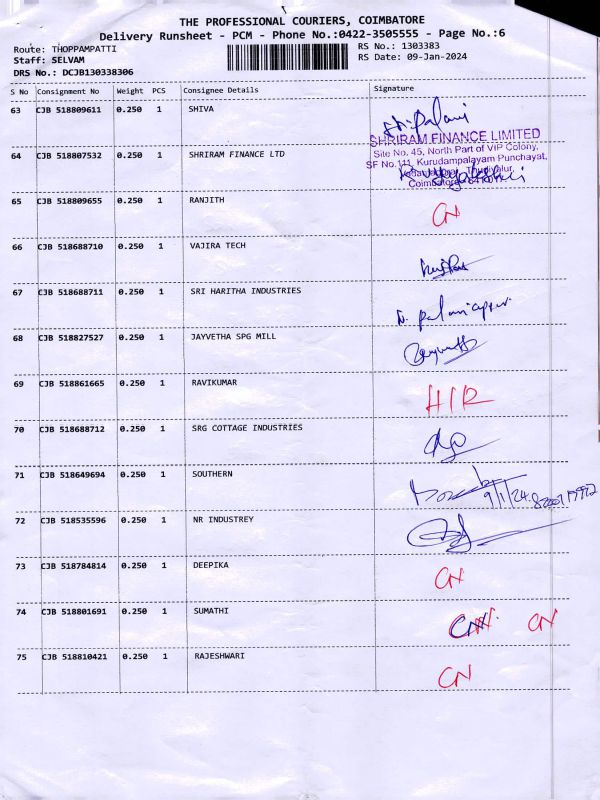 THE PROFESSIONAL COURIERS, COIMBATORE
Delivery Runsheet - PCM - Phone No.:0422-3505555 - Page No.:6
Route: THOPPAMPATTI
Staff: SELVAM
DRS No.: DCJB130338306
RS No.: 1303383
RS Date: 09-Jan-2024
S No Consignment No Weight PCS Consignee Details Signature
63 CJB 518809611 0.250 1 SHIVA
SHRIRAM FINANCE LIMITED
Site No. 45, North Part of VIP Colony,
SF No.111, Kurudampalayam Punchayat,
64 CJB 518807532 0.250 1 SHRIRAM FINANCE LTD
65 CJB 518809655 0.250 1 RANJITH CN
66 CJB 518688710 0.250 1 VAJIRA TECH
67 CJB 518688711 0.250 1 SRI HARITHA INDUSTRIES
68 CJB 518827527 0.250 1 JAYVETHA SPG MILL
69 CJB 518861665 0.250 1 RAVIKUMAR H/R
70 CJB 518688712 0.250 1 SRG COTTAGE INDUSTRIES
71 CJB 518649694 0.250 1 SOUTHERN 9/1/24
72 CJB 518535596 0.250 1 NR INDUSTREY
73 CJB 518784814 0.250 1 DEEPIKA CN
74 CJB 518801691 0.250 1 SUMATHI CN
75 CJB 518810421 0.250 1 RAJESHWARI CN